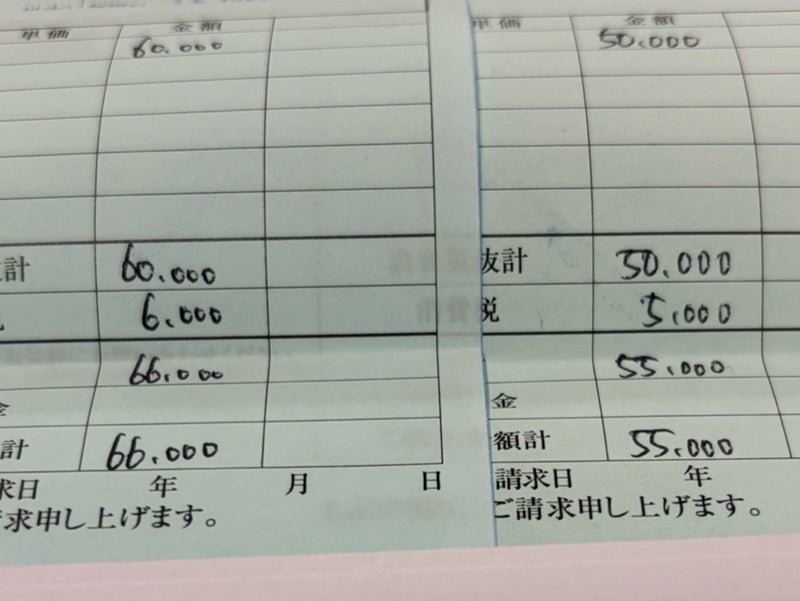 単価 金額
60.000
計 60.000
6.000
66.000
金
計 66.000
求日 年 月 日
請求申し上げます。
単価 金額
50.000
抜計 50.000
税 5.000
55.000
金
額計 55.000
請求日 年
ご請求申し上げます。